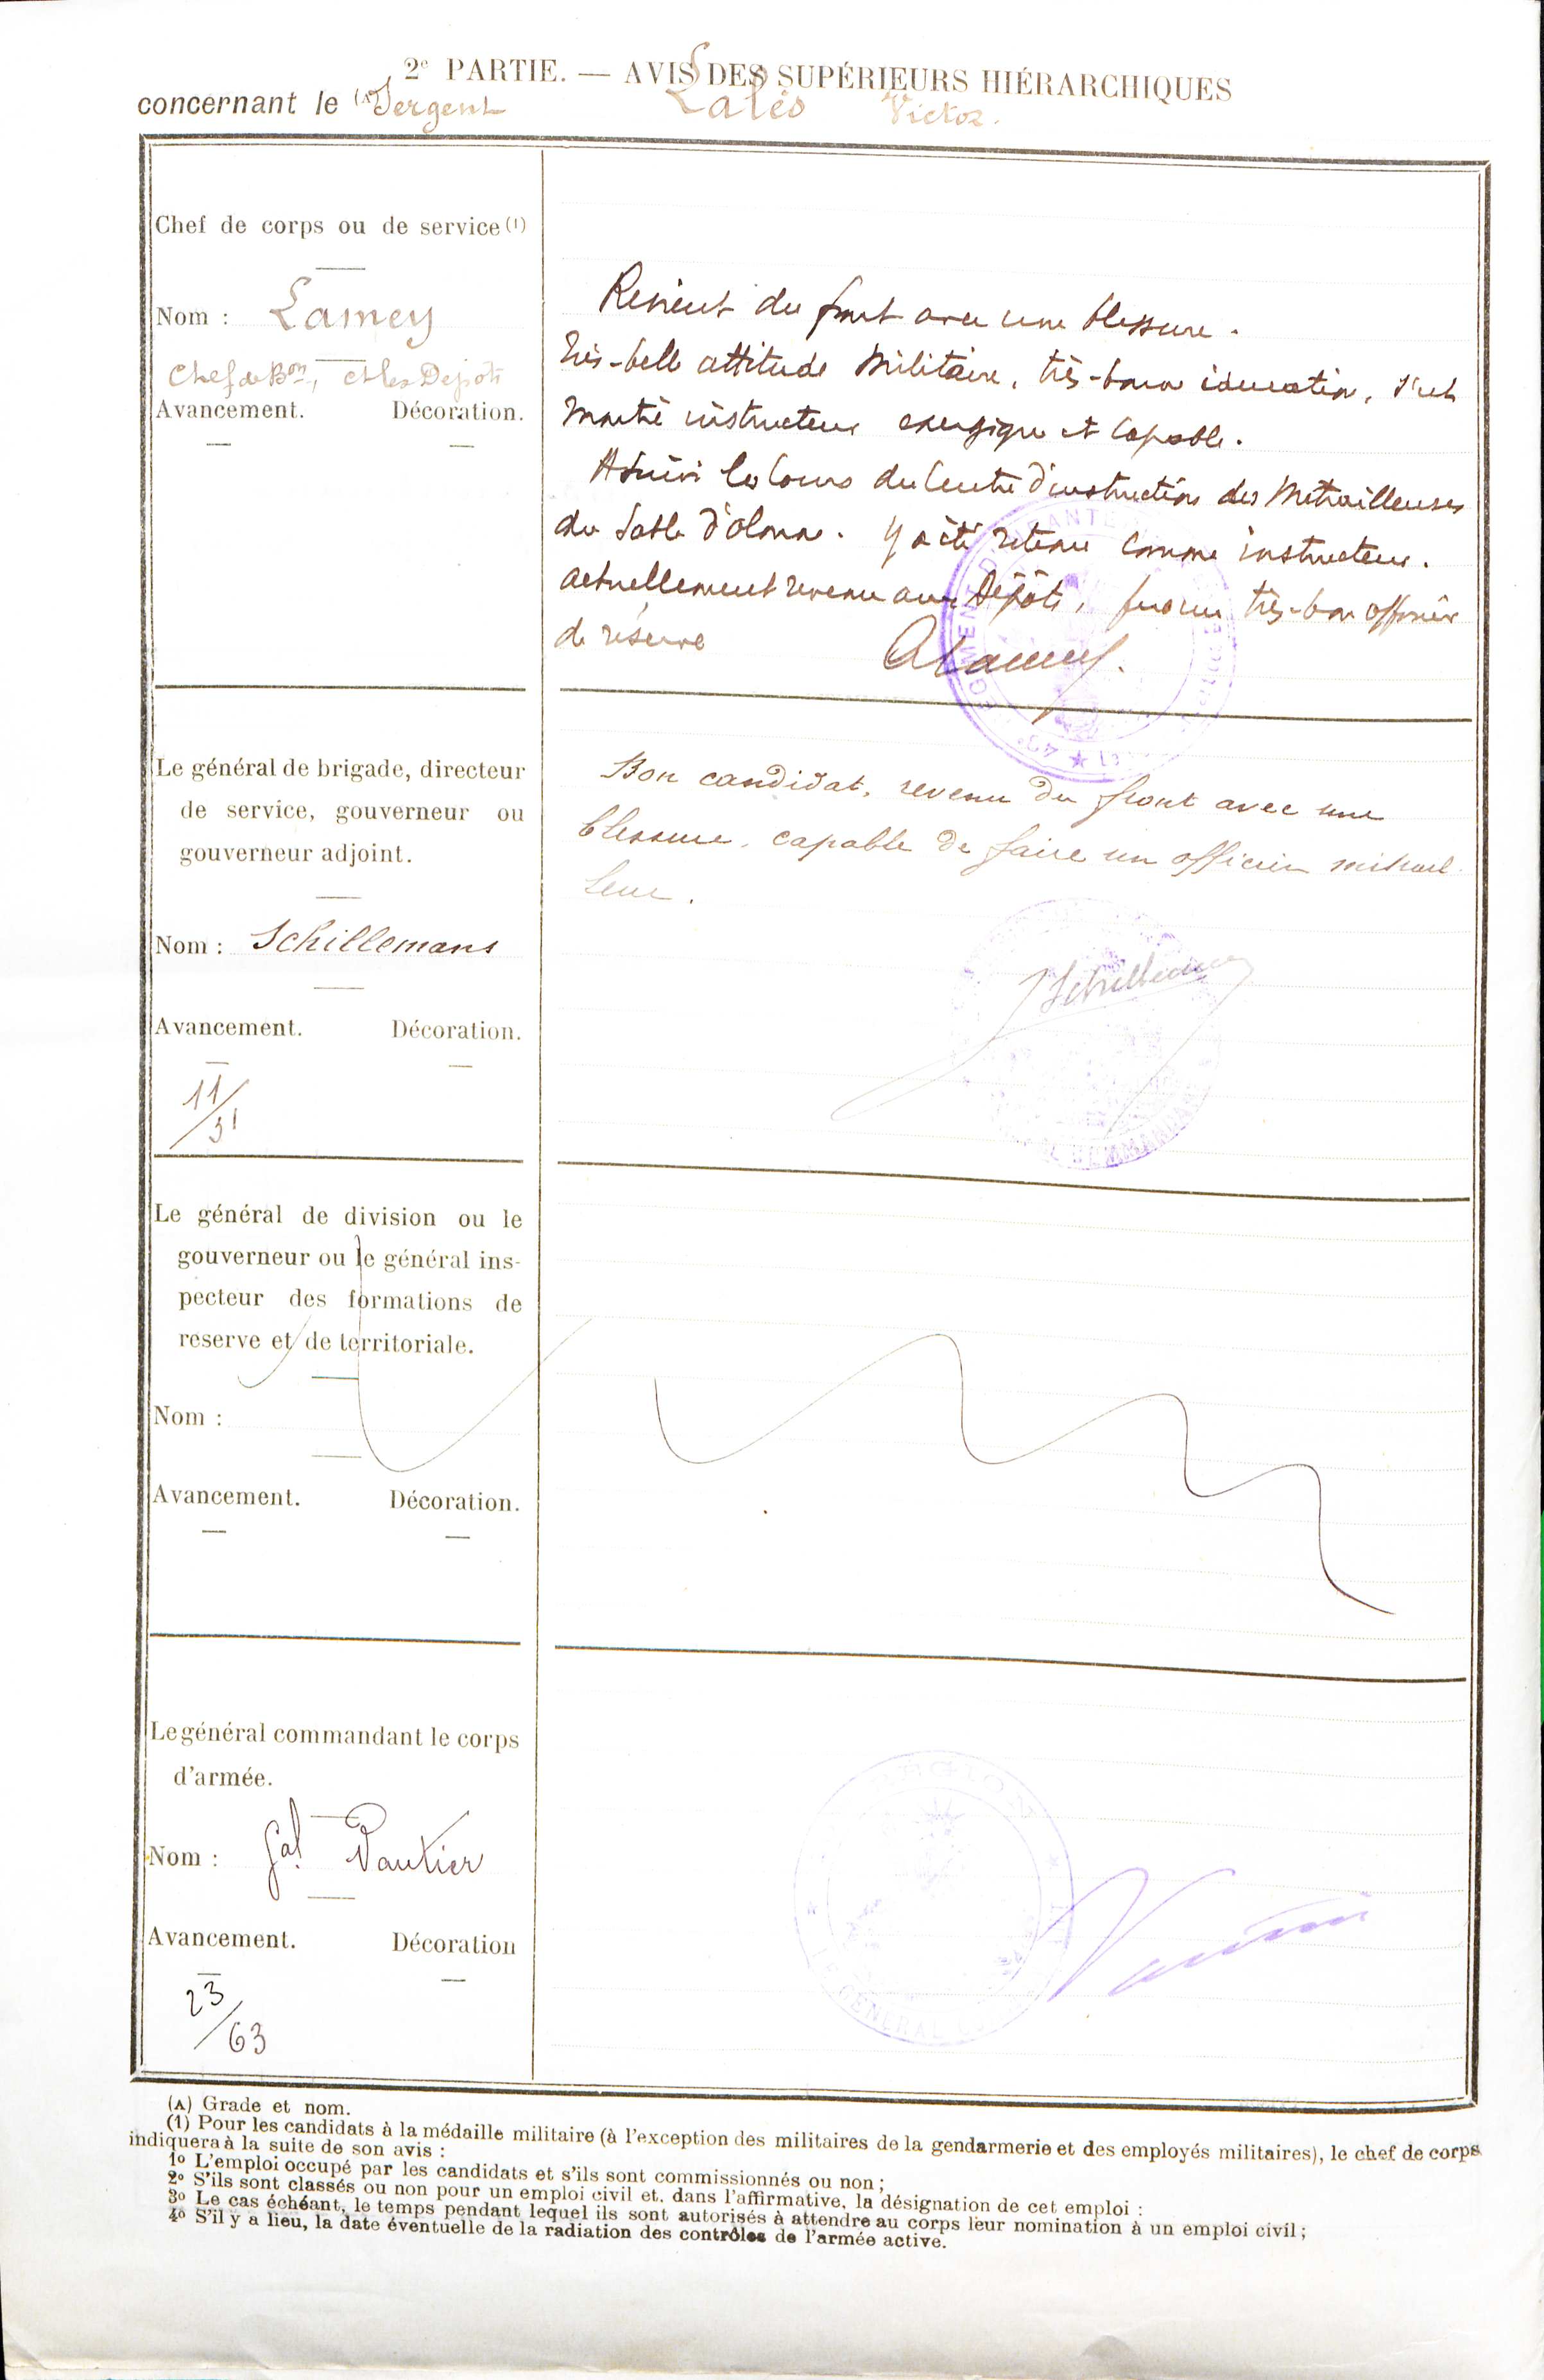 2e PARTIE. — AVIS DES SUPÉRIEURS HIÉRARCHIQUES
concernant le (A) Sergent Lalès Victor.
Chef de corps ou de service (1)
Nom : Lamey
Chef de Bon, ct les Dépôts
Avancement. Décoration.
Revient du front avec une blessure.
Très-belle attitude militaire, très-bonne éducation, s'est
montré instructeur énergique et capable.
A suivi les Cours du Centre d'instruction des Mitrailleuses
du Sable d'Olonne. Y a été retenu comme instructeur.
Actuellement revenu aux Dépôts, fera un très-bon officier
de réserve
ALamey.
Le général de brigade, directeur
de service, gouverneur ou
gouverneur adjoint.
Nom : Schillemans
Avancement. Décoration.
11/31
Bon candidat, revenu du front avec une
blessure, capable de faire un officier mitrail-
leur.
Schillemans
Le général de division ou le
gouverneur ou le général ins-
pecteur des formations de
reserve et de territoriale.
Nom :
Avancement. Décoration.
Le général commandant le corps
d'armée.
Nom : Gal Vautier
Avancement. Décoration
23/63
RÉGION
LE GÉNÉRAL
Vautier
(A) Grade et nom.
(1) Pour les candidats à la médaille militaire (à l'exception des militaires de la gendarmerie et des employés militaires), le chef de corps
indiquera à la suite de son avis :
1o L'emploi occupé par les candidats et s'ils sont commissionnés ou non ;
2o S'ils sont classés ou non pour un emploi civil et, dans l'affirmative, la désignation de cet emploi :
3o Le cas échéant, le temps pendant lequel ils sont autorisés à attendre au corps leur nomination à un emploi civil ;
4o S'il y a lieu, la date éventuelle de la radiation des contrôles de l'armée active.